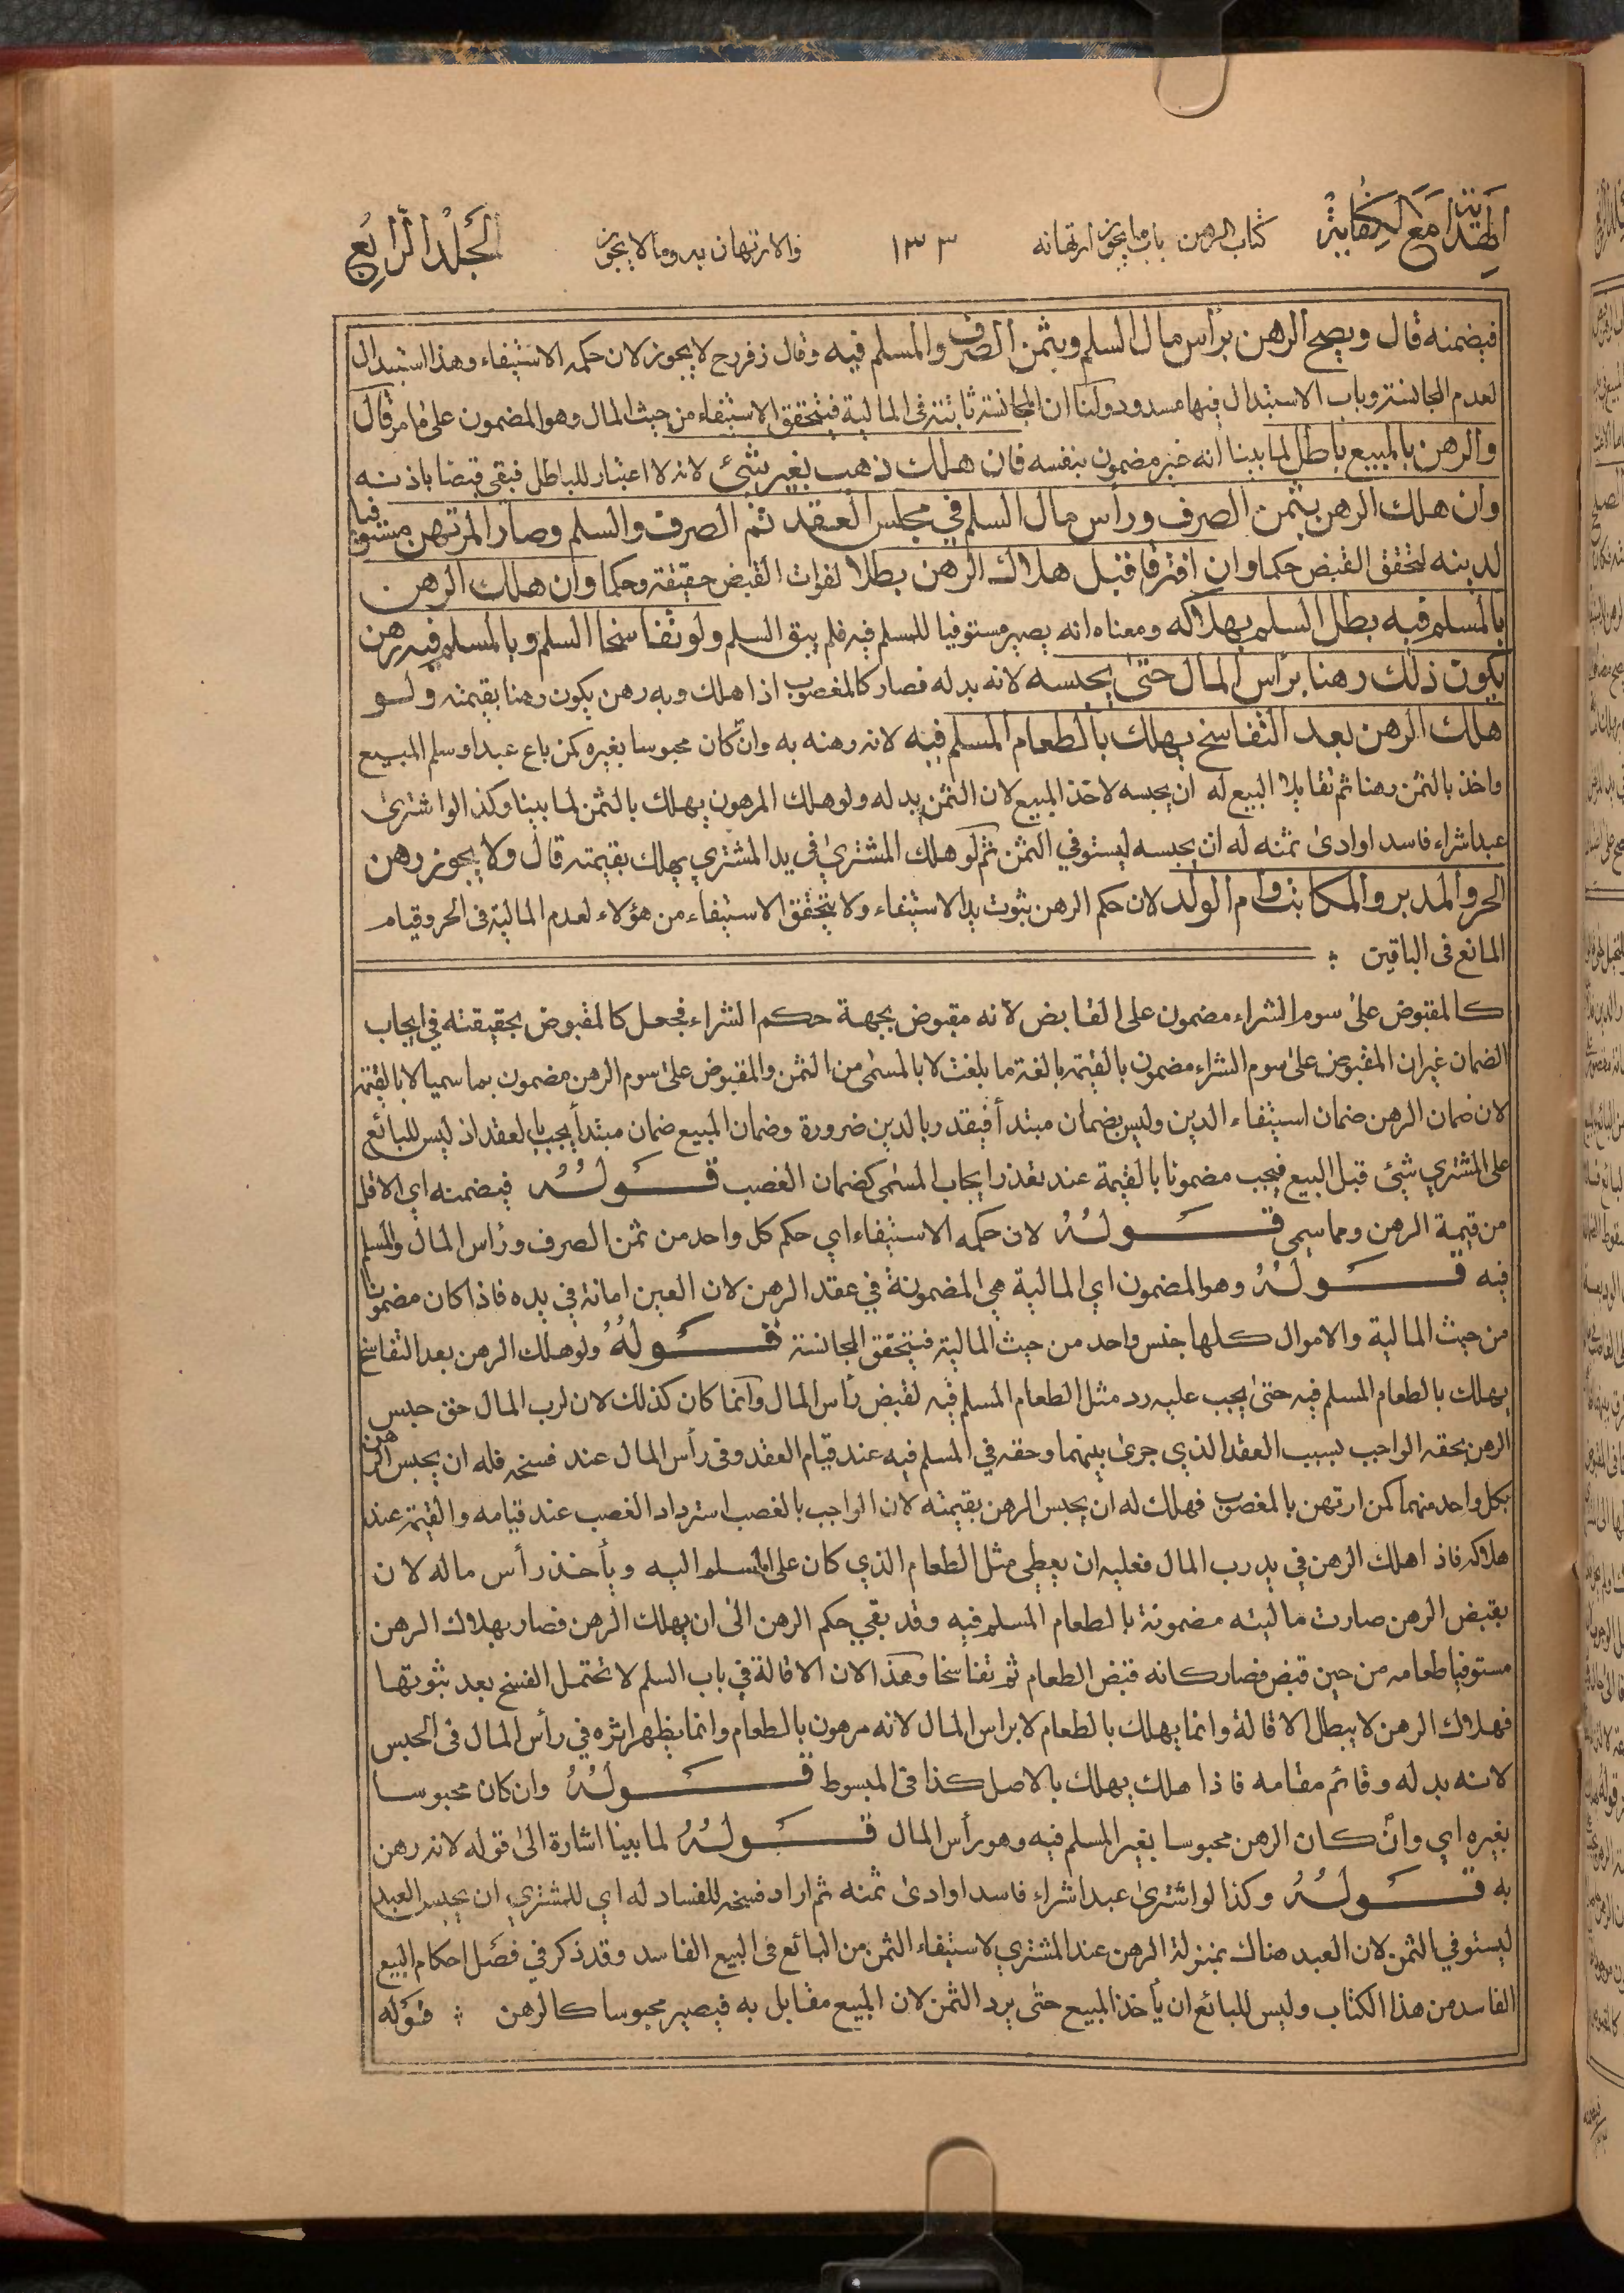 الهداية مع الكفاية كتاب الرهن باب ما يجوز ارتهانه ١٣٣ والارتهان به وما لا يجوز الجلد الرابع
فيضمنه قال ويصح الرهن برأس مال السلم وبثمن الصرف والمسلم فيه وقال زفر رح لا يجوز لان حكمه الاستيفاء وهذا استبدال
لعدم المجانسة وباب الاستبدال فيها مسدود ولنا ان المجانسة ثابتة فى المالية فيتحقق الاستيفاء من حيث المال وهو المضمون على ما مر قال
والرهن بالمبيع باطل لما بينا انه غير مضمون بنفسه فان هلك ذهب بغير شئ لانه لا اعتبار للباطل فبقى قبضا باذنه
وان هلك الرهن بثمن الصرف ورأس مال السلم في مجلس العقد تم الصرف والسلم وصار المرتهن مستوفيا
لدينه لتحقق القبض حكما وان افترقا قبل هلاك الرهن بطلا لفوات القبض حقيقة وحكما وان هلك الرهن
بالمسلم فيه بطل السلم بهلاكه ومعناه انه يصير مستوفيا للمسلم فيه فلم يبق السلم ولو تفاسخا السلم وبالمسلم فيه رهن
يكون ذلك رهنا برأس المال حتى يحبسه لانه بدله فصار كالمغصوب اذا هلك وبه رهن يكون رهنا بقيمته ولو
هلك الرهن بعد التفاسخ يهلك بالطعام المسلم فيه لانه رهنه به وان كان محبوسا بغيره كمن باع عبدا وسلم المبيع
واخذ بالثمن رهنا ثم تقايلا البيع له ان يحبسه لاخذ المبيع لان الثمن بدله ولو هلك المرهون يهلك بالثمن لما بينا وكذا لو اشترى
عبدا شراء فاسدا وادى ثمنه له ان يحبسه ليستوفي الثمن ثم لو هلك المشترى في يد المشتري يهلك بقيمته قال ولا يجوز رهن
الحر والمدبر والمكاتب وام الولد لان حكم الرهن ثبوت يد الاستيفاء ولا يتحقق الاستيفاء من هؤلاء لعدم المالية فى الحر وقيام
المانع فى الباقين
كالمقبوض على سوم الشراء مضمون على القابض لأنه مقبوض بجهة حكم الشراء فجعل كالمقبوض بحقيقته في ايجاب
الضمان غير ان المقبوض على سوم الشراء مضمون بالقيمة بالغة ما بلغت لا بالمسمى من الثمن والمقبوض على سوم الرهن مضمون بما سميا لا بالقيمة
لان ضمان الرهن ضمان استيفاء الدين وليس بضمان مبتدأ فيقدر بالدين ضرورة وضمان المبيع ضمان مبتدأ يجب بالعقد اذ ليس للبائع
على المشتري شئ قبل البيع فيجب مضمونا بالقيمة عند تعذر ايجاب المسمى كضمان الغصب قوله فيضمنه اي الاقل
من قيمة الرهن ومما سمي قوله لان حكمه الاستيفاء اي حكم كل واحد من ثمن الصرف ورأس المال والمسلم
فيه قوله وهو المضمون اي المالية هي المضمونة في عقد الرهن لان العين امانة في يده فاذا كان مضمونا
من حيث المالية والاموال كلها جنس واحد من حيث المالية فيتحقق المجانسة قوله ولو هلك الرهن بعد التفاسخ
يهلك بالطعام المسلم فيه حتى يجب عليه رد مثل الطعام المسلم فيه لقبض رأس المال وانما كان كذلك لان لرب المال حق حبس
الرهن بحقه الواجب بسبب العقد الذي جرى بينهما وحقه في المسلم فيه عند قيام العقد وفى رأس المال عند فسخه فله ان يحبس الرهن
بكل واحد منهما كمن ارتهن بالمغصوب فهلك له ان يحبس الرهن بقيمته لان الواجب بالغصب استرداد الغصب عند قيامه والقيمة عند
هلاكه فاذا هلك الرهن في يد رب المال فعليه ان يعطى مثل الطعام الذي كان على المسلم اليه ويأخذ رأس ماله لان
بقبض الرهن صارت ماليته مضمونة بالطعام المسلم فيه وقد بقي حكم الرهن الى ان يهلك الرهن فصار بهلاك الرهن
مستوفيا طعامه من حين قبض فصار كانه قبض الطعام ثم تفاسخا وهذا لان الاقالة في باب السلم لا تحتمل الفسخ بعد ثبوتها
فهلاك الرهن لا يبطل الاقالة وانما يهلك بالطعام لا براس المال لانه مرهون بالطعام وانما يظهر اثره في رأس المال فى الحبس
لانه بدله وقائم مقامه فاذا هلك يهلك بالاصل كذا فى المبسوط قوله وان كان محبوسا
بغيره اي وان كان الرهن محبوسا بغير المسلم فيه وهو رأس المال قوله لما بينا اشارة الى قوله لانه رهن
به قوله وكذا لو اشترى عبدا شراء فاسدا وادى ثمنه ثم اراد فسخه للفساد له اي للمشتري ان يحبس العبد
ليستوفي الثمن لان العبد هناك بمنزلة الرهن عند المشتري لاستيفاء الثمن من البائع فى البيع الفاسد وقد ذكر في فصل احكام البيع
الفاسد من هذا الكتاب وليس للبائع ان يأخذ المبيع حتى يرد الثمن لان المبيع مقابل به فيصير محبوسا كالرهن قوله